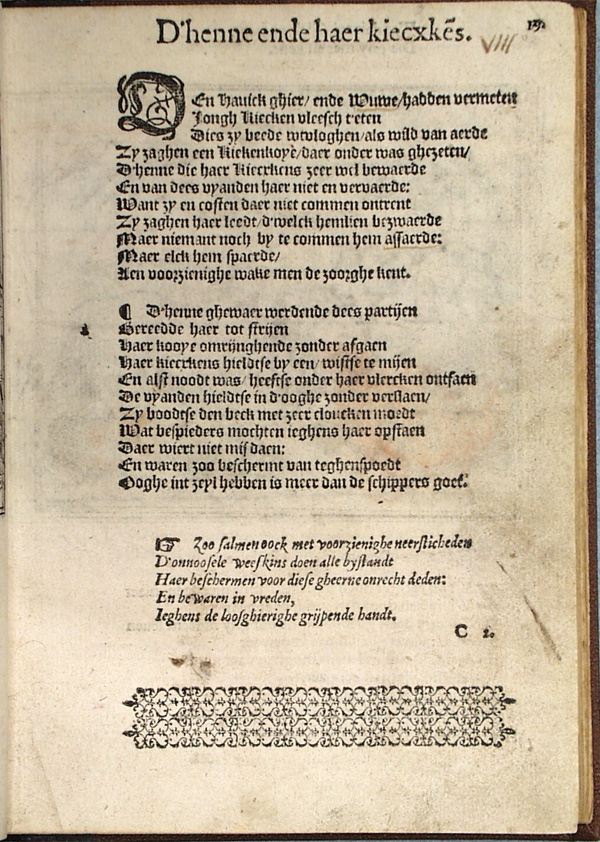 D'henne ende haer kiecxkēs.
VIII
19.
DEn Hauick ghier/ ende Wuwe/hadden vermeten
Jongh Kiecken vleesch t'eten
Dies zy beede wtvloghen/als wild van aerde
Zy zaghen een Kiekenkoye/daer onder was ghezeten/
D'henne die haer Kieckens zeer wel bewaerde
En van dees vyanden haer niet en vervaerde:
Want zy en costen daer niet commen ontrent
Zy zaghen haer leedt/d'welck hemlien bezwaerde
Maer niemant noch by te commen hem assaerde:
Maer elck hem spaerde/
Aen voorzienighe wake men de zoorghe kent.
¶ D'henne ghewaer werdende dees partijen
Gereedde haer tot strijen
Haer kooye omrijnghende zonder afgaen
Haer kieckens hieldtse by een/ wistse te mijen
En alst noodt was/ heeftse onder haer vlercken ontfaen
De vyanden hieldtse in d'ooghe zonder verslaen/
Zy boodtse den beck met zeer cloucken moedt
Wat bespieders mochten ieghens haer opstaen
Daer wiert niet misdaen:
En waren zoo beschermt van teghenspoedt
Ooghe int zeyl hebben is meer dan de schippers goet.
☞ Zoo salmen oock met voorzienighe neersticheden
D'onnoosele weeskins doen alle bystandt
Haer beschermen voor diese gheerne onrecht deden:
En bewaren in vreden,
Ieghens de loosghierighe grijpende handt.
C 2.